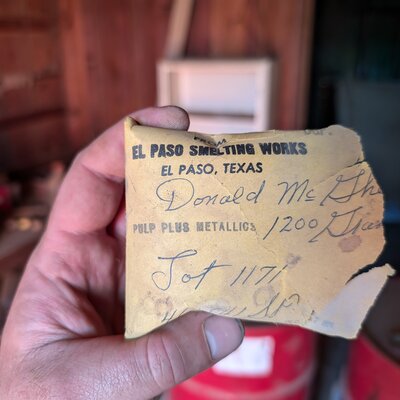 FROM
EL PASO SMELTING WORKS
EL PASO, TEXAS
Donald McGh
PULP PLUS METALLICS 1200 Gra
Lot 1171